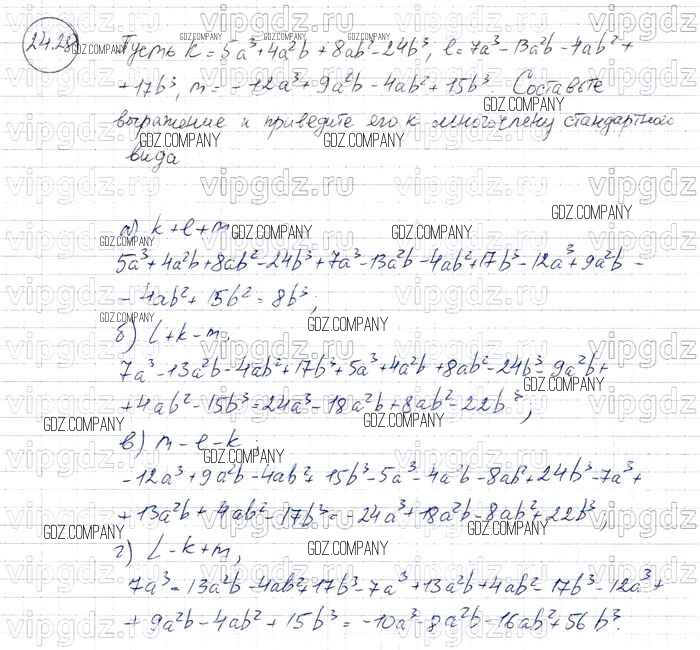 24.28
Пусть k = 5a³+4a²b+8ab²-24b³, l=7a³-13a²b-4ab²+
+17b³, m = -12a³+9a²b-4ab²+15b³. Составьте
выражение и приведите его к многочлену стандартного
вида
а) k+l+m,
5a³+4a²b+8ab²-24b³+7a³-13a²b-4ab²+17b³-12a³+9a²b-
-4ab²+15b²=8b³;
б) L+k-m,
7a³-13a²b-4ab²+17b³+5a³+4a²b+8ab²-24b³-9a²b+
+4ab²-15b³=24a³-18a²b+8ab²-22b³,
в) m-l-k,
-12a³+9a²b-4ab²+15b³-5a³-4a²b-8ab²+24b³-7a³+
+13a²b+4ab²-17b³=-24a³+18a²b-8ab²+22b³,
г) L-k+m,
7a³-13a²b-4ab²+17b³-7a³+13a²b+4ab²-17b³-12a³+
+9a²b-4ab²+15b³=-10a³-8a²b-16ab²+56b³.
GDZ.COMPANY
vipgdz.ru